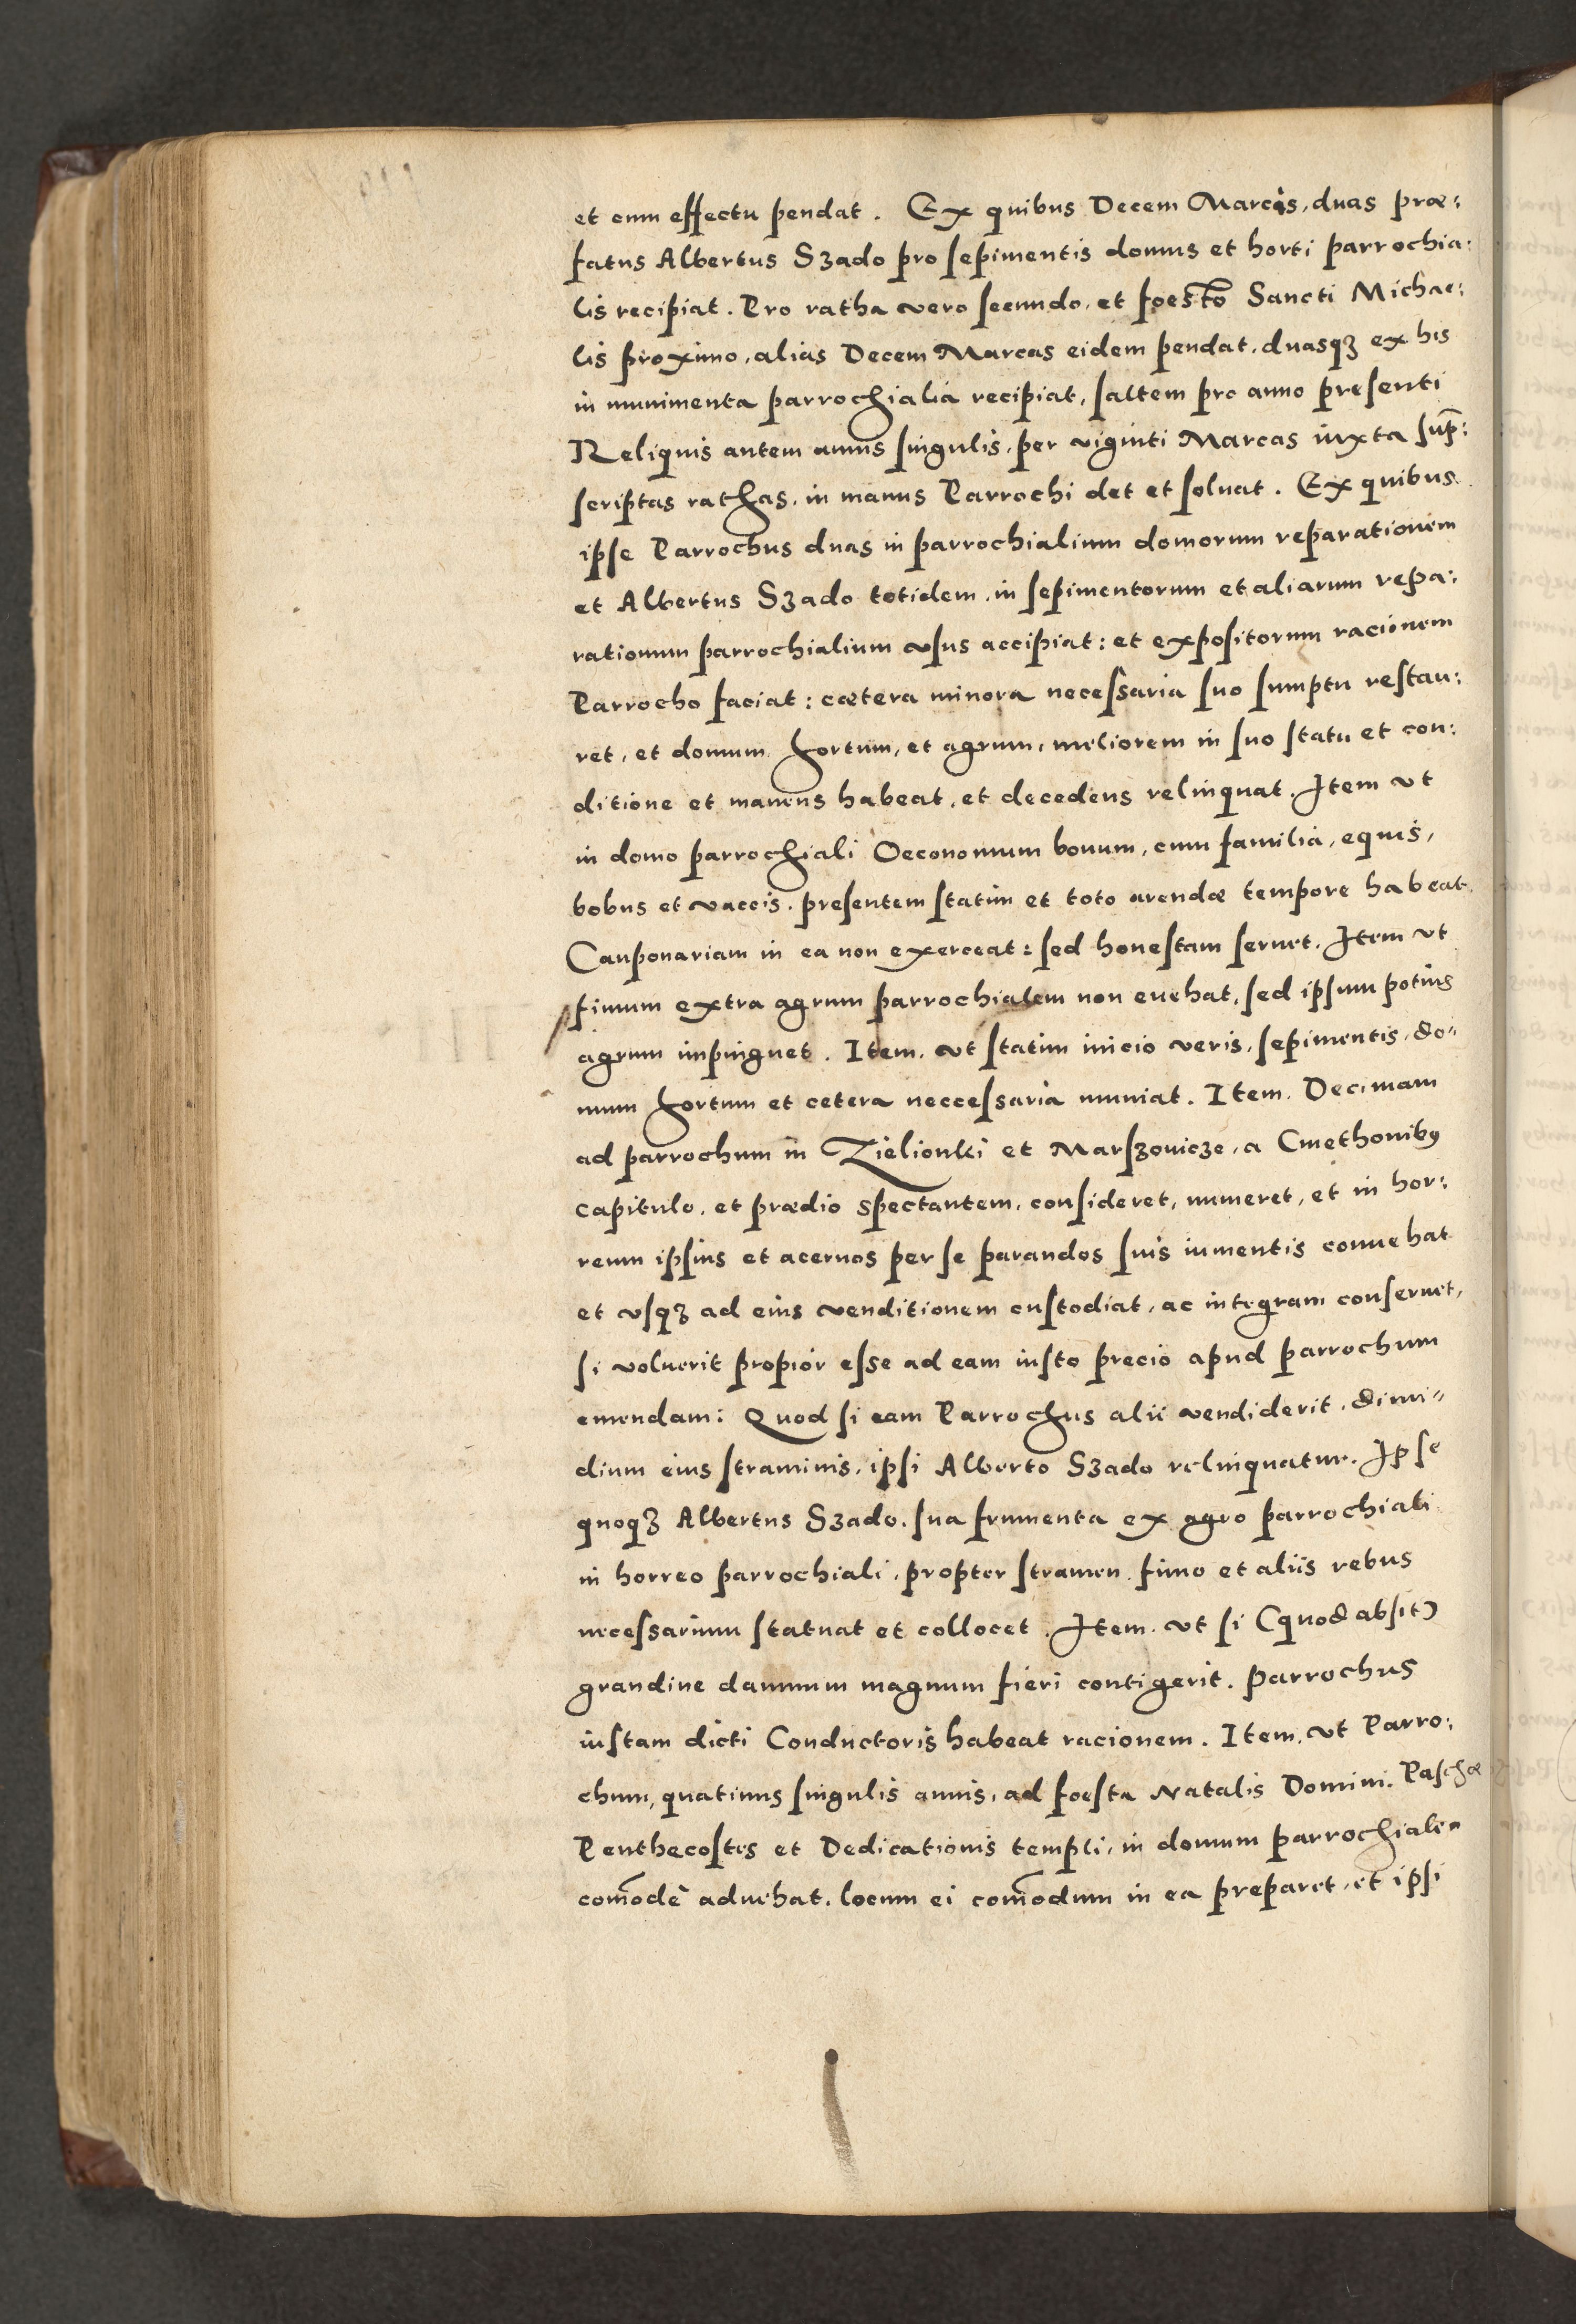 et cum effectu pendat. Ex quibus Decem Marcis, duas præ:
fatus Albertus Szado pro sepimentis domus et horti parrochia:
lis recipiat. Pro ratha vero secundo, et foesto Sancti Michae:
lis proximo, alias Decem Marcas eidem pendat, duasqꝫ ex his
in munimenta parrochialia recipiat, saltem pro anno presenti
Reliquis autem annis singulis, per viginti Marcas iuxta sup̄:
scriptas rathas, in manus Parrochi det et soluat. Ex quibus
ipse Parrochus duas in parrochialium domorum reparationem
et Albertus Szado totidem, in sepimentorum et aliarum repa:
rationum parrochialium vsus accipiat: et expositorum racionem
Parrocho faciat: cætera minora necessaria suo sumptu restau:
ret, et domum hortum, et agrum, meliorem in suo statu et con:
ditione et manens habeat, et decedens relinquat. Item vt
in domo parrochiali Oeconomum bonum, cum familia, equis,
bobus et vaccis, presentem statim et toto arendæ tempore habeat.
Cauponariam in ea non exerceat: sed honestam seruet. Item vt
fimum extra agrum parrochialem non euehat, sed ipsum potius
agrum impinguet. Item, vt statim inicio veris, sepimentis, do〃
mum hortum et cetera neccessaria muniat. Item. Decimam
ad parrochum in Zielionki et Marszouicze, a Cmethonibꝰ
capitulo, et prædio spectantem, consideret, numeret, et in hor:
reum ipsius et aceruos per se parandos suis iumentis conuehat
et vsqꝫ ad eius venditionem custodiat, ac integram conseruet,
si voluerit propior esse ad eam iusto precio apud parrochum
emendam: Quod si eam Parrochus alii vendiderit, dimi〃
dium eius straminis, ipsi Alberto Szado relinquatur. Ipse
quoqꝫ Albertus Szado, sua frumenta ex agro parrochiali
in horreo parrochiali, propter stramen fimo et aliis rebus
necessarium statuat et collocet. Item. vt si (quod absit)
grandine damnum magnum fieri contigerit, parrochus
iustam dicti Conductoris habeat racionem. Item, vt Parro:
chum, quatinus singulis annis, ad foesta Natalis Domini, Paschæ
Penthecostes et Dedicationis templi, in domum parrochialem
com̄ode aduehat, locum ei com̄odum in ea preparet, et ipsi